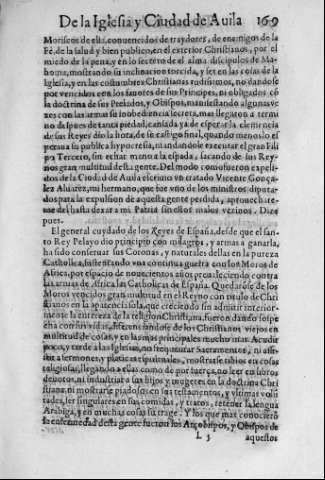 De la Iglesia y Ciudad de Auila 169
Moriscos de esta, conuencidos de traydores, de enemigos de la
Fé, de la salud y bien publico, en el exterior Christianos, por el
miedo de la pena, y en lo secreto de el alma discipulos de Ma-
homa, mostrando su inclinacion torcida, y ser en las cosas de la
Iglesia, y en las costumbres Christianas nudosos, no dandose
por vencidos en los fauores de sus Principes, ni obligados cõ
la doctrina de sus Prelados, y Obispos, manifestando algunas ve
zes con las armas su inobediencia secreta, mas llegaron a termi
no despues de tanta piedad, cansada ya de esperar la clemencia
de sus Reyes dio la hora, de su castigo final, quando menos lo es
peraua su publica hypocresia, ni andandole executar el gran Fili
po Tercero, sin echar mano a la espada, sacando de sus Rey-
nos gran multitud desta gente. Del modo como fueron expeli-
dos de la Ciudad de Auila escriuio vn tratado Vicente Gonça-
lez Aluarez, mi hermano, que fue vno de los ministros diputa-
dos para la expulsion de aquesta gente perdida, aprouechare-
me del hasta dexar a mi Patria sin estos malos vezinos. Dize
pues.
El general cuydado de los Reyes de España, desde que el san-
to Rey Pelayo dio principio con milagros, y armas a ganarla,
ha sido conseruar sus Coronas, y naturales dellas en la pureza
Catholica, sustentando vna continua guerra con los Moros de
Africa, por espacio de nouecientos años preualeciendo contra
las armas de Africa, las Catholicas de España. Quedarõse de los
Moros vencidos gran multitud en el Reyno con titulo de Chri
stianos en la apariencia sola, que creciendo sin admitir interior-
mente la entereza de la religion Christiana, fueron dando sospe
cha con sus vidas, diferenciandose de los Christianos viejos en
multitud de cosas, y en las mas principales mucho mas. Acudir
poco, y tarde a las Iglesias, no frequentar Sacramentos, ni assi-
stir a sermones, y platicas espirituales, mostrarse tibios en cosas
religiosas, llegando a ellas como de por fuerça, no leer en libros
deuotos, ni industriar a sus hijos y mugeres en la doctrina Chri
stiana, ni mostrarse piadosos en sus testamentos, y vltimas volũ
tades, ser singulares en sus comidas, y tratos, retener la lengua
Arabiga, y en muchas cosas su trage. Y los que mas conocieron
la enfermedad desta gente fueron los Arçobispos, y Obispos de
L 5 aquestos